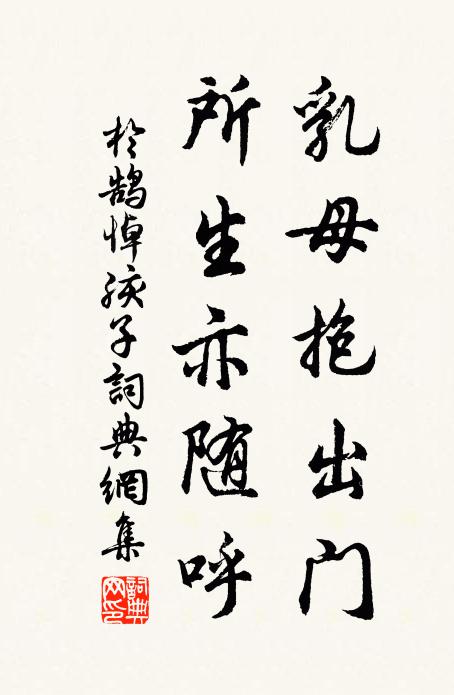 乳母抱出门
所生亦随呼
於鹄悼孩子詞典網集
詞典网印